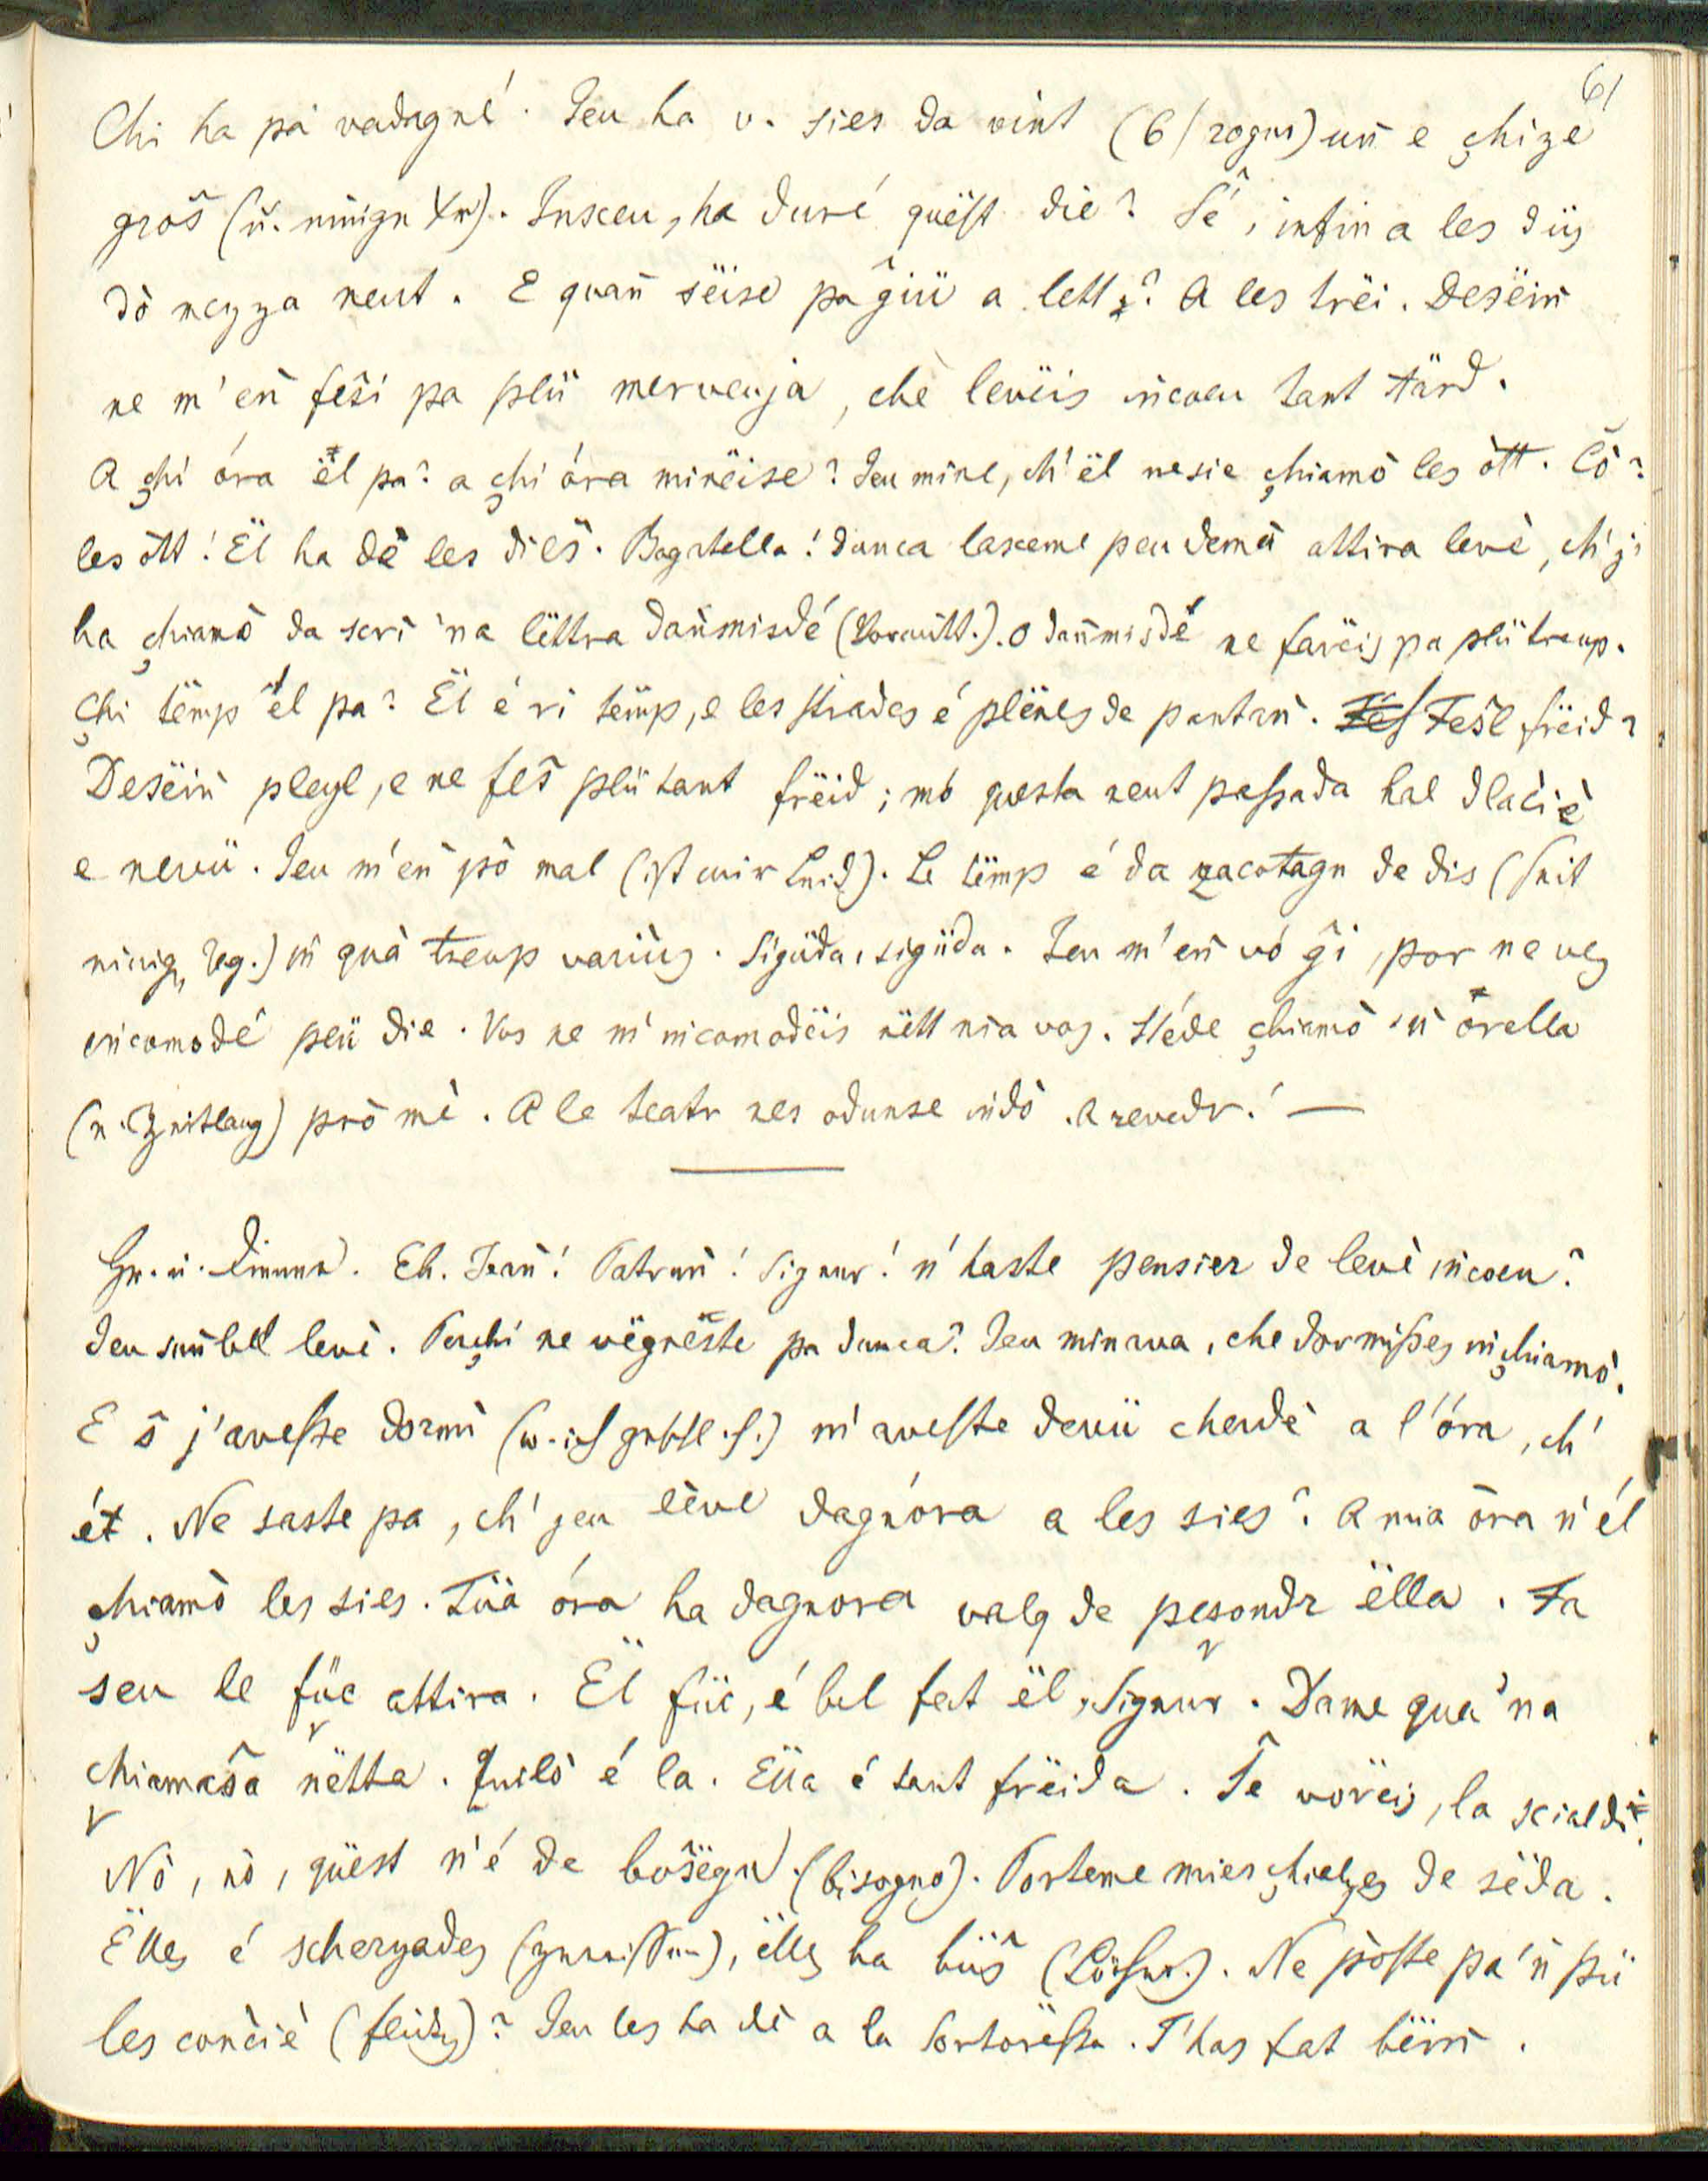 61
Chi ha pa vadagné. Jeu ha v. sies da vint (6/20gus) uñ e çhize
groŝ (ñ. Xr). Insceu, ha duré quëst die? Sê, infin a les düs
dò mezza neut. E quañ sëise pa ĝiü a lett? A les trëi. Desëiñ
ne m'eñ feŝi pa plü mervenja, che levëis iñcoeu tant tärd.
A çhi óra ël pa? a çhi óra minëise? Jeu mine, ch' ël ne sie çhiamò les ott. Cô?
les ött! Ël ha dè les dieŝ. Bagatella! dunca lasceme peu demà attira levè, ch' j'
ha çhiamò da scrì 'na lëttra dañmisdé (Vormitt.). O dañmisdé ne farëis pa plü treup.
Çhi tëmp él pa? Ël é ri tëmp, e les strades é plënes de pantañ. Feŝl frëid?
Desëiñ pleyl, e ne feŝ plü tant frëid; mo questa neut passada hal dlaĉiè
e nevü. Jeu m'eñ pò mal (ist mir Leid). Le tëmp é da zacotagn de dis (seit
einig. Tag.) iñ quà treup variùs. Sigüda, sigüda. Jeu m' eñ vó ĝi, por ne ves
iñcomodé plü die. Vos ne m' incomodëis nëtt nia vos. Stéde çhiamò 'ñ örella
(n. Zeitlang) prò mè. A le teatr nes odunse iñdò. A revedr! —
Hr. u. Diener. Eh. Jeañ! Patruñ! Signur! n' haste pensier de levè iñcoeu?
Jeu suñ bell levè. Perçhi ne vëgnëste pa dunca? Jeu minava, che dormisses iñ çhiamò.
E ŝ j'avesse dormì (w. ich geschl. h.) m' aveste devü cherdè a l'óra, ch'
ét. Ne saste pa, ch' jeu lève dagnóra a les sies? A mia óra n' él
çhiamò les sies. Tüa óra ha dagnora valq de pesondr ëlla. Fa
seu le füc attira. Ël füc, é bel fat ël, Signur. Dame qua 'na
chiameŝa nëtta. Quilò é la. Ëlla é tant frëida. Se vorëis, la scialdi.
Nò, nò, quëst n' é de boŝëgn (bisogno). Porteme mies çhialzes de sëda.
Ëlles é scherzades (zerrissen), ëlles ha büŝ (Löcher). Ne pòste pa 'ñ pü
les conĉiè (flicken)? Jeu les ha dè a la sortorëssa. T'has fat bëiñ.